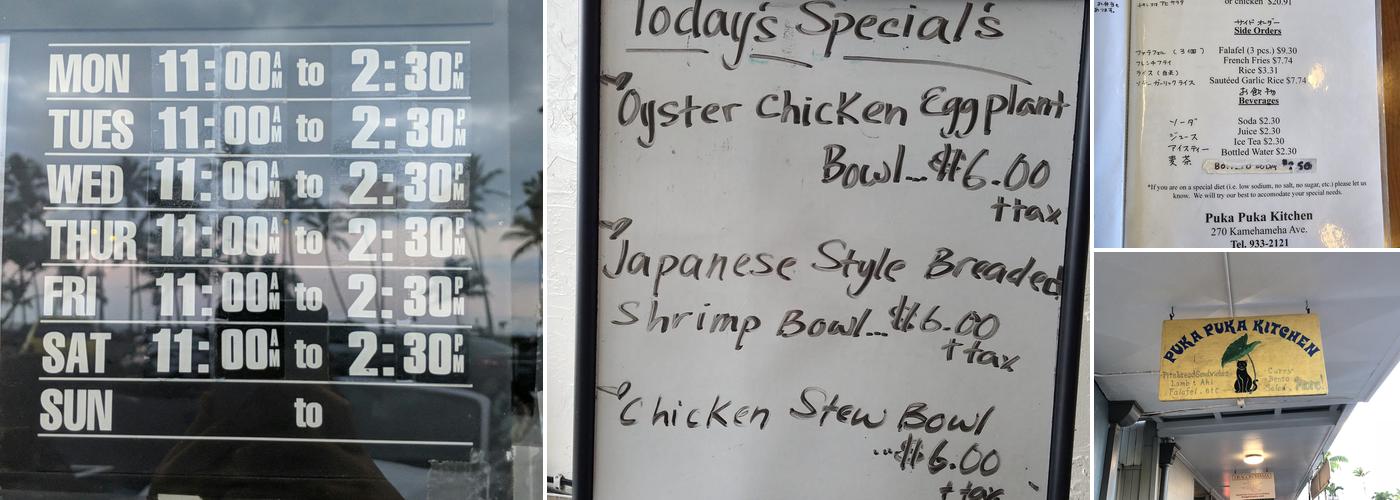 MON 11:00AM to 2:30PM
TUES 11:00AM to 2:30PM
WED 11:00AM to 2:30PM
THUR 11:00AM to 2:30PM
FRI 11:00AM to 2:30PM
SAT 11:00AM to 2:30PM
SUN to
Today's Special's
Oyster Chicken Eggplant
Bowl...$6.00
+tax
Japanese Style Breaded
Shrimp Bowl...$6.00
+tax
Chicken Stew Bowl
...$6.00
+tax
or chicken $20.91
サイド オーダー
Side Orders
ファラフェル (3個) Falafel (3 pcs.) $9.30
フレンチフライ French Fries $7.74
ライス (白米) Rice $3.31
ガーリックライス Sautéed Garlic Rice $7.74
お飲物
Beverages
ソーダ Soda $2.30
ジュース Juice $2.30
アイスティー Ice Tea $2.30
麦茶 Bottled Water $2.30
*If you are on a special diet (i.e. low sodium, no salt, no sugar, etc.) please let us
know. We will try our best to accomodate your special needs.
Puka Puka Kitchen
270 Kamehameha Ave.
Tel. 933-2121
PUKA PUKA KITCHEN
Pita bread Sandwiches
Lamb & Ahi
Falafel, etc
Curry
Bento
Salad
More!